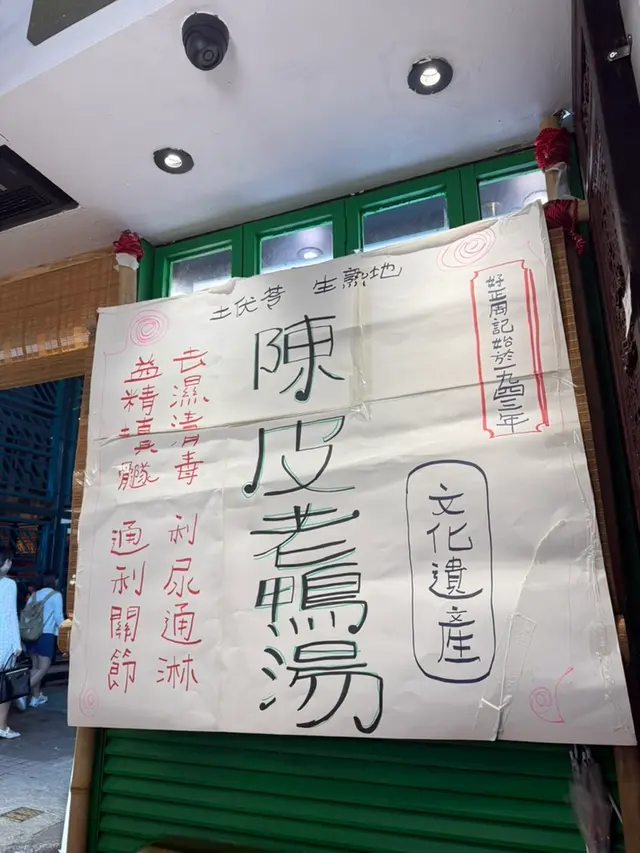 土伏苓 生熟地
好正周記始於一九四三年
文化遺產
陳皮老鴨湯
去濕清毒 利尿通淋
益精填髓 通利關節